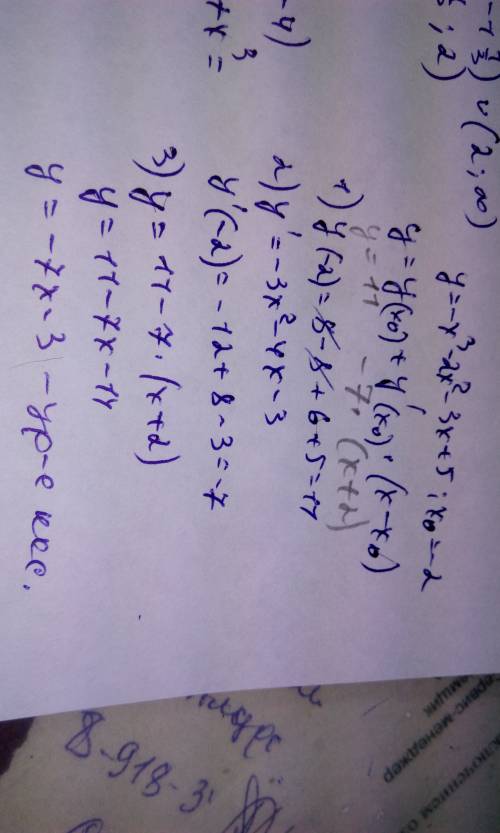 -1 1/3) ∪ (2; ∞)
; 2)
-4)
+x³ =
y = -x³ - 2x² - 3x + 5 ; x₀ = -2
y = y(x₀) + y'(x₀) · (x - x₀)
y = 11 - 7 · (x+2)
1) y(-2) = 8 - 8 + 6 + 5 = 11
2) y' = -3x² - 4x - 3
y'(-2) = -12 + 8 - 3 = -7
3) y = 11 - 7 · (x+2)
y = 11 - 7x - 14
y = -7x - 3 - ур-е кас.
8-918-3
сервис-менеджер